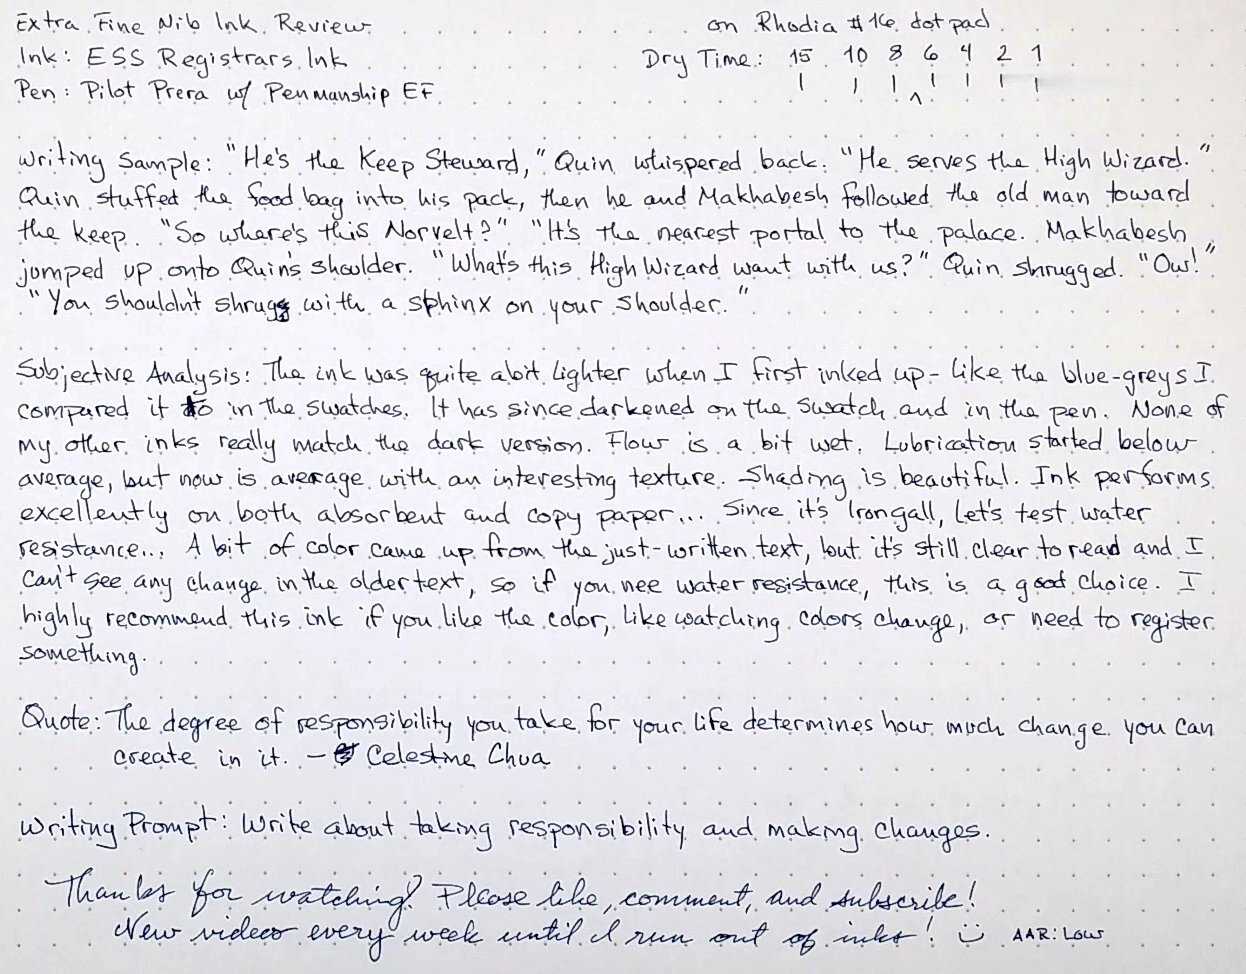 Extra Fine Nib Ink Review on Rhodia #16 dot pad
Ink: ESS Registrars Ink Dry Time: 15 10 8 6 4 2 1
Pen: Pilot Prera w/ Penmanship EF
Writing Sample: "He's the Keep Steward," Quin whispered back. "He serves the High Wizard."
Quin stuffed the food bag into his pack, then he and Makhabesh followed the old man toward
the keep. "So where's this Norvelt?" "It's the nearest portal to the palace. Makhabesh
jumped up onto Quin's shoulder. "What's this High Wizard want with us?" Quin shrugged. "Ow!"
"You shouldn't shrug with a sphinx on your shoulder."
Subjective Analysis: The ink was quite abit lighter when I first inked up - like the blue-greys I
compared it to in the swatches. It has since darkened on the swatch and in the pen. None of
my other inks really match the dark version. Flow is a bit wet. Lubrication started below
average, but now is average with an interesting texture. Shading is beautiful. Ink performs
excellently on both absorbent and copy paper... Since it's Irongall, let's test water
resistance... A bit of color came up from the just-written text, but it's still clear to read and I
can't see any change in the older text, so if you nee water resistance, this is a good choice. I
highly recommend this ink if you like the color, like watching colors change, or need to register
something.
Quote: The degree of responsibility you take for your life determines how much change you can
create in it. - Celestine Chua
Writing Prompt: Write about taking responsibility and making changes.
Thanks for watching! Please like, comment, and subscribe!
New videos every week until I run out of inks! AAR: Low